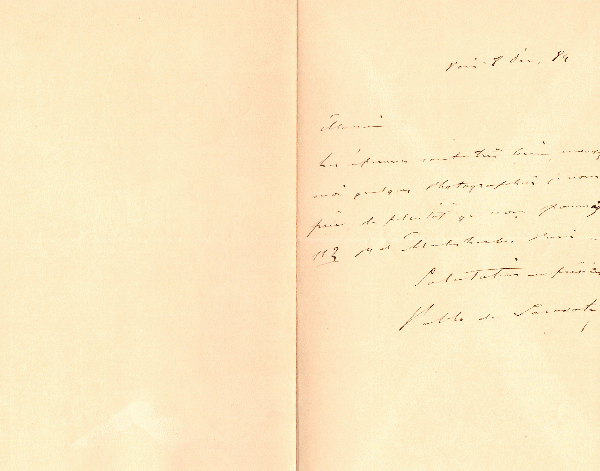 Paris 8 Déc. 84
Monsieur
Les épreuves sont très bien, envoyez
moi quelques photographies je vous
prie le plutôt que vous pourrez
112 Bd Malesherbes Paris
Salutations empressées
Pablo de Sarasate